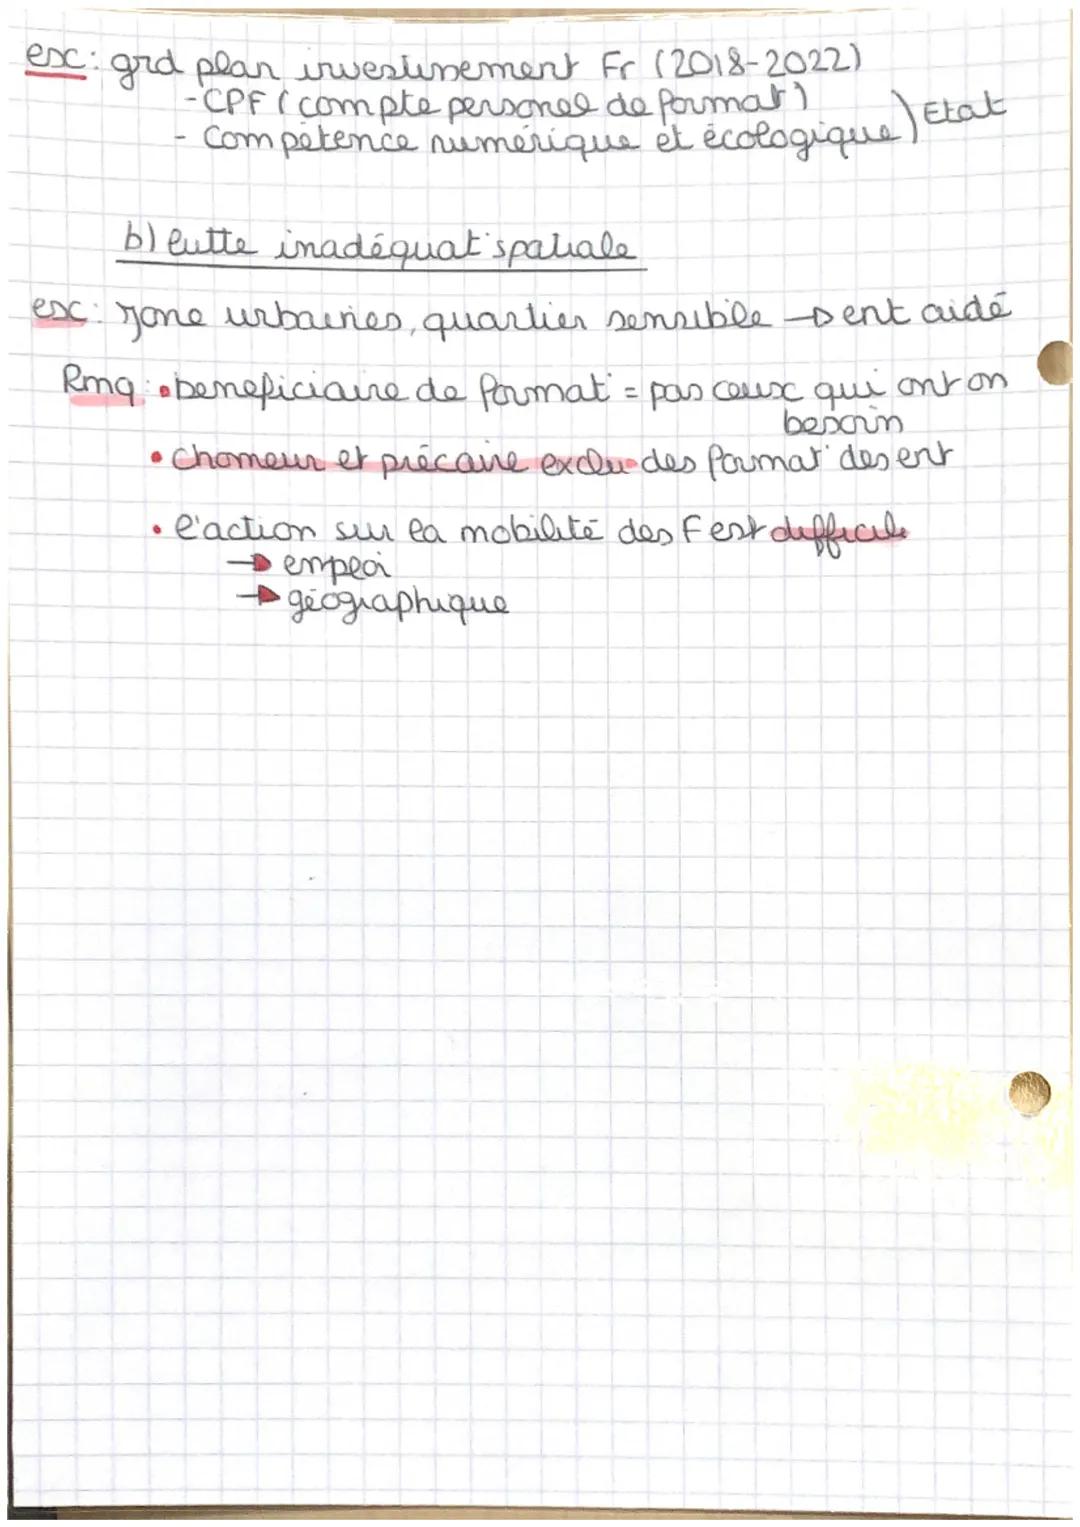 ex: grd plan investissement Fr (2018-2022)
-CPF (compte personel de format°)
- Compétence numérique et écologique ) Etat
b) lutte inadéquat° spatiale
ex: zone urbaines, quartier sensible → ent aidé
Rmq: • beneficiaire de format° = pas ceux qui ont on
besoin
• chomeur et précaire exclu des format° des ent
• l'action sur la mobilité des F est difficile
→ emploi
→ géographique